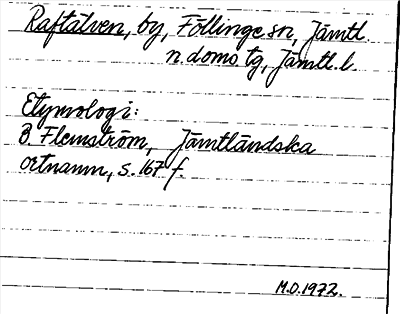 Raftälven, by, Föllinge sn, Jämtl.
n. doms tg, Jämtl. l.
Etymologi:
B. Flemström, Jämtländska
ortnamn, s. 167 f.
M.O. 1972.